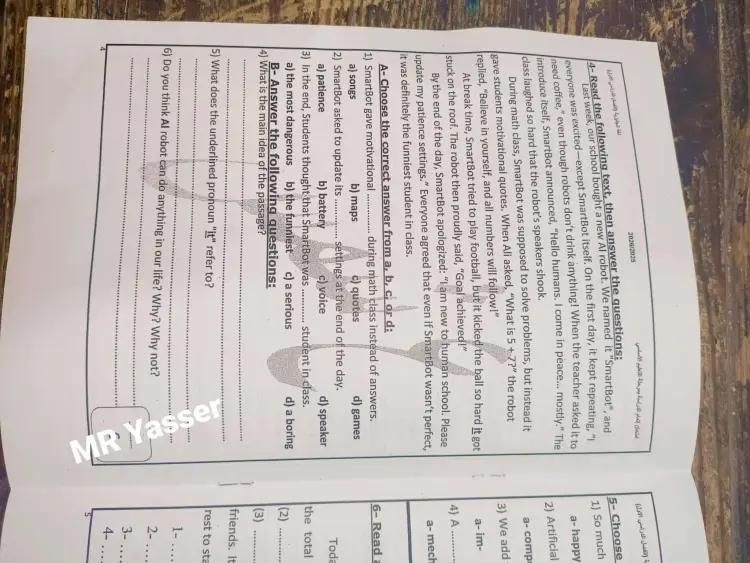 2026/2025
4- Read the following text, then answer the questions:
Last week, our school bought a new AI robot. We named it "SmartBot", and
everyone was excited—except SmartBot itself. On the first day, it kept repeating, "I
need coffee," even though robots don't drink anything! When the teacher asked it to
introduce itself, SmartBot announced, "Hello humans. I come in peace... mostly." The
class laughed so hard that the robot's speakers shook.
During math class, SmartBot was supposed to solve problems, but instead it
gave students motivational quotes. When Ali asked, "What is 5 + 7?" the robot
replied, "Believe in yourself, and all numbers will follow!"
At break time, SmartBot tried to play football, but it kicked the ball so hard it got
stuck on the roof. The robot then proudly said, "Goal achieved!"
By the end of the day, SmartBot apologized: "I am new to human school. Please
update my patience settings." Everyone agreed that even if SmartBot wasn't perfect,
it was definitely the funniest student in class.
A- Choose the correct answer from a, b, c, or d:
1) SmartBot gave motivational ............ during math class instead of answers.
a) songs b) maps c) quotes d) games
2) SmartBot asked to update its ............ settings at the end of the day.
a) patience b) battery c) voice d) speaker
3) In the end, Students thought that SmartBot was ............ student in class.
a) the most dangerous b) the funniest c) a serious d) a boring
B- Answer the following questions:
4) What is the main idea of the passage?
5) What does the underlined pronoun "it" refer to?
6) Do you think AI robot can do anything in our life? Why? Why not?
4
MR Yasser
5- Choose
1) So much
a- happy
2) Artificial
a- comp
3) We add
a- im-
4) A ............
a- mech
6- Read a
Toda
the total
(2) ............
(3) ............
friends. It
rest to sta
1- ....
2- ....
3- ....
4- ....
5